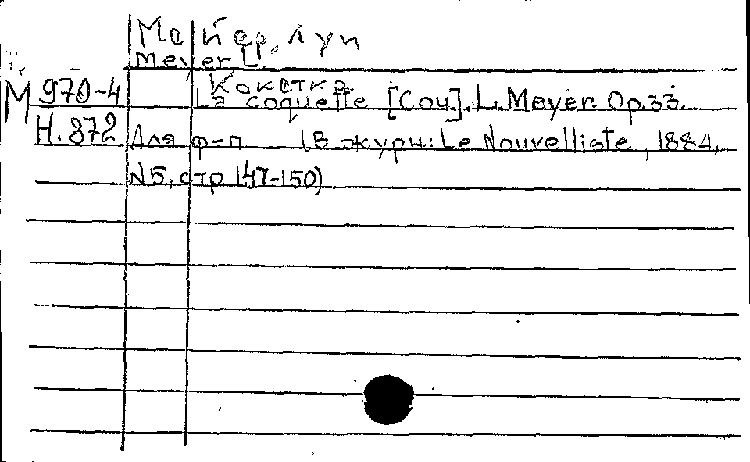 Майер, Луи
Meyer L.
Кокетка
М 970-4 La coquette [Соч]. L. Meyer. Op. 33.
Н. 872 Для ф-п (В журн: Le Nouvelliste, 1884,
N5, стр 147-150)